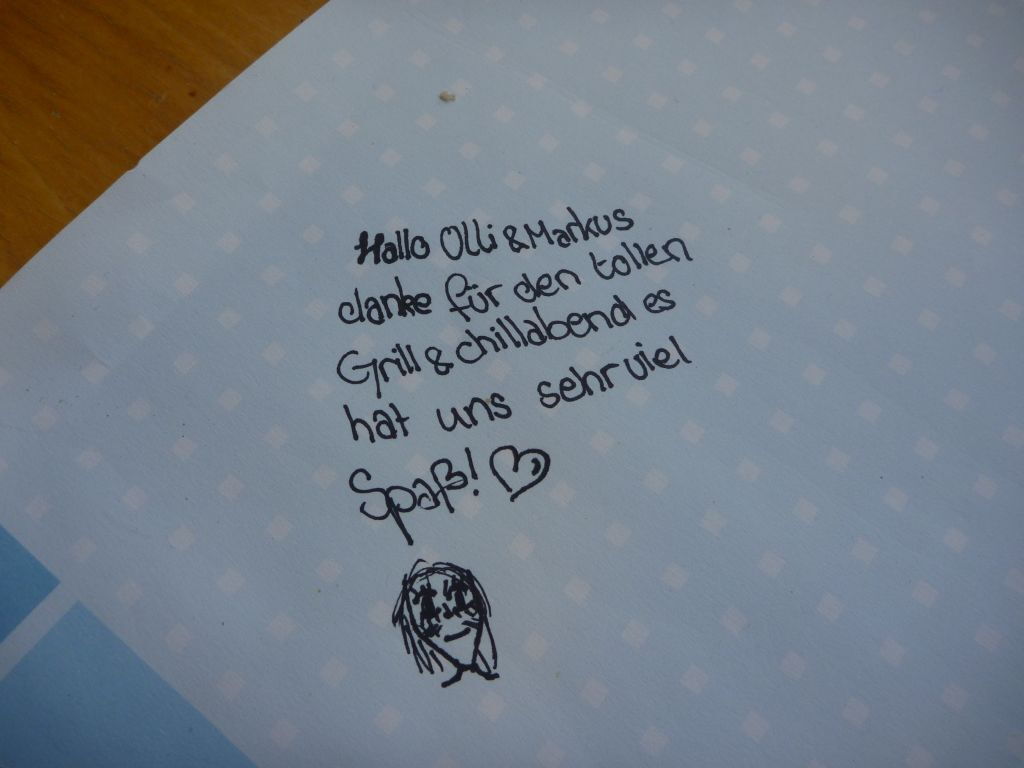 Hallo Olli & Markus
danke für den tollen
Grill & chillabend es
hat uns sehr viel
Spaß! ♡